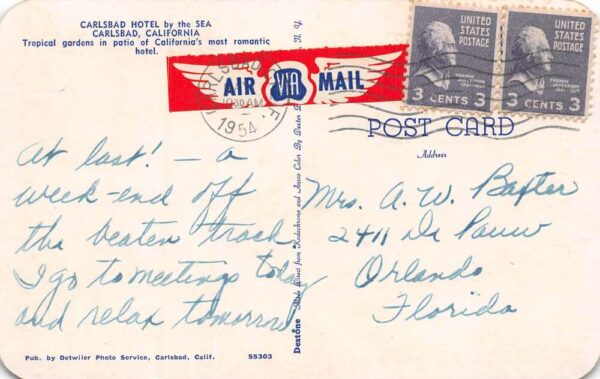 CARLSBAD HOTEL by the SEA
CARLSBAD, CALIFORNIA
Tropical gardens in patio of California's most romantic
hotel.
AIR VIA MAIL
CARLSBAD
1030 AM
1954
UNITED
STATES
POSTAGE
THOMAS
JEFFERSON
3 CENTS 3
UNITED
STATES
POSTAGE
THOMAS
JEFFERSON
3 CENTS 3
POST CARD
Address
At last! — a
week-end off
the beaten track
I go to meetings today
and relax tomorrow
Mrs. A. W. Baxter
2411 De Pauw
Orlando
Florida
Dextone Made Direct from Kodachrome and Ansco Color By Dexter N. Y.
Pub. by Detwiler Photo Service, Carlsbad, Calif. 55303